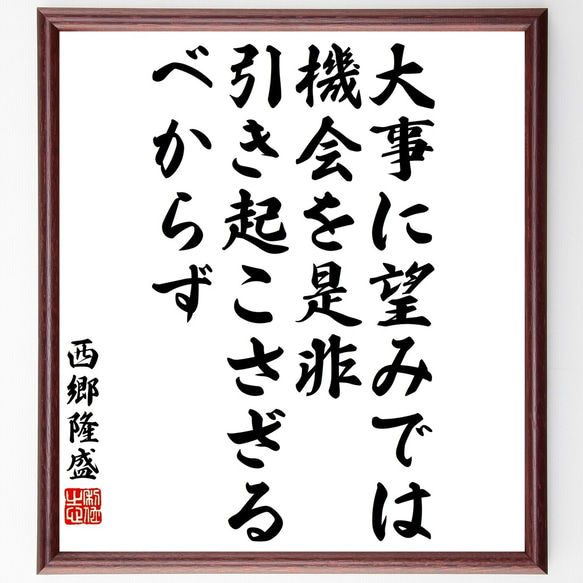 大事に望みでは
機会を是非
引き起こさざる
べからず
西郷隆盛